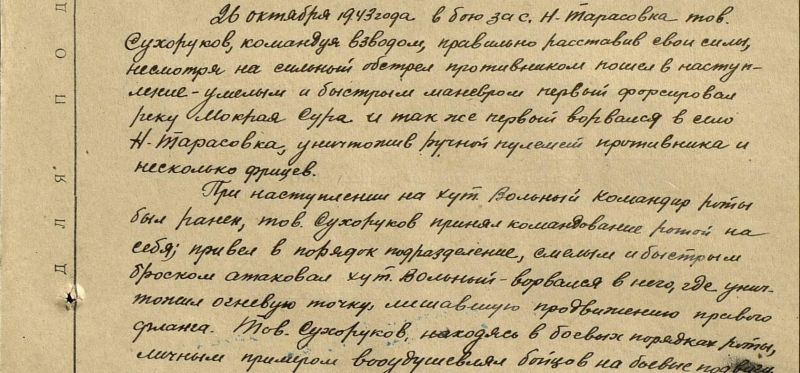 26 октября 1943 года в бою за с. Н-Тарасовка тов.
Сухоруков, командуя взводом, правильно расставив свои силы,
несмотря на сильный обстрел противником пошел в наступ-
ление - умелым и быстрым маневром первый форсировал
реку Мокрая Сура и так же первый ворвался в село
Н-Тарасовка, уничтожив ручной пулемет противника и
несколько фрицев.
При наступлении на хут. Вольный командир роты
был ранен, тов. Сухоруков принял командование ротой на
себя; привел в порядок подразделение, смелым и быстрым
броском атаковал хут. Вольный - ворвался в него, где унич-
тожил огневую точку, мешавшую продвижению правого
фланга. Тов. Сухоруков, находясь в боевых порядках роты,
личным примером воодушевлял бойцов на боевые подвиги
ДЛЯ ПОД